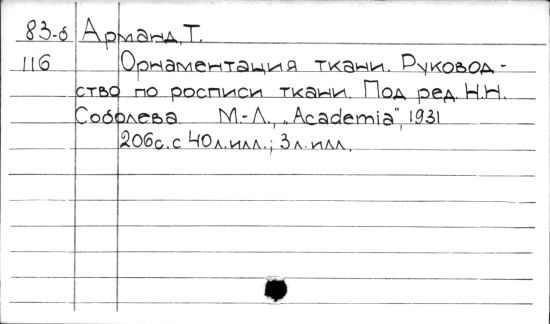 83-б Арманд, Т.
116 Орнаментация ткани. Руковод-
ство по росписи ткани. Под ред. Н.Н.
Соболева М.-Л., „Academia", 1931
206с. с 40 л. илл.; 3 л. илл.